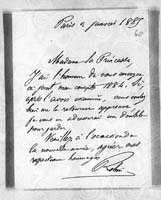 Paris 2 janvier 1885
60
Madame la Princesse
J'ai l'honneur de vous envoyer
ci joint mon compte 1884. Si,
après l'avoir examiné, vous voulez
bien me le retourner approuvé,
je vous en adresserai un double
pour garder.
Veuillez à l'occasion de
la nouvelle année, agréer mes
respectueux hommages